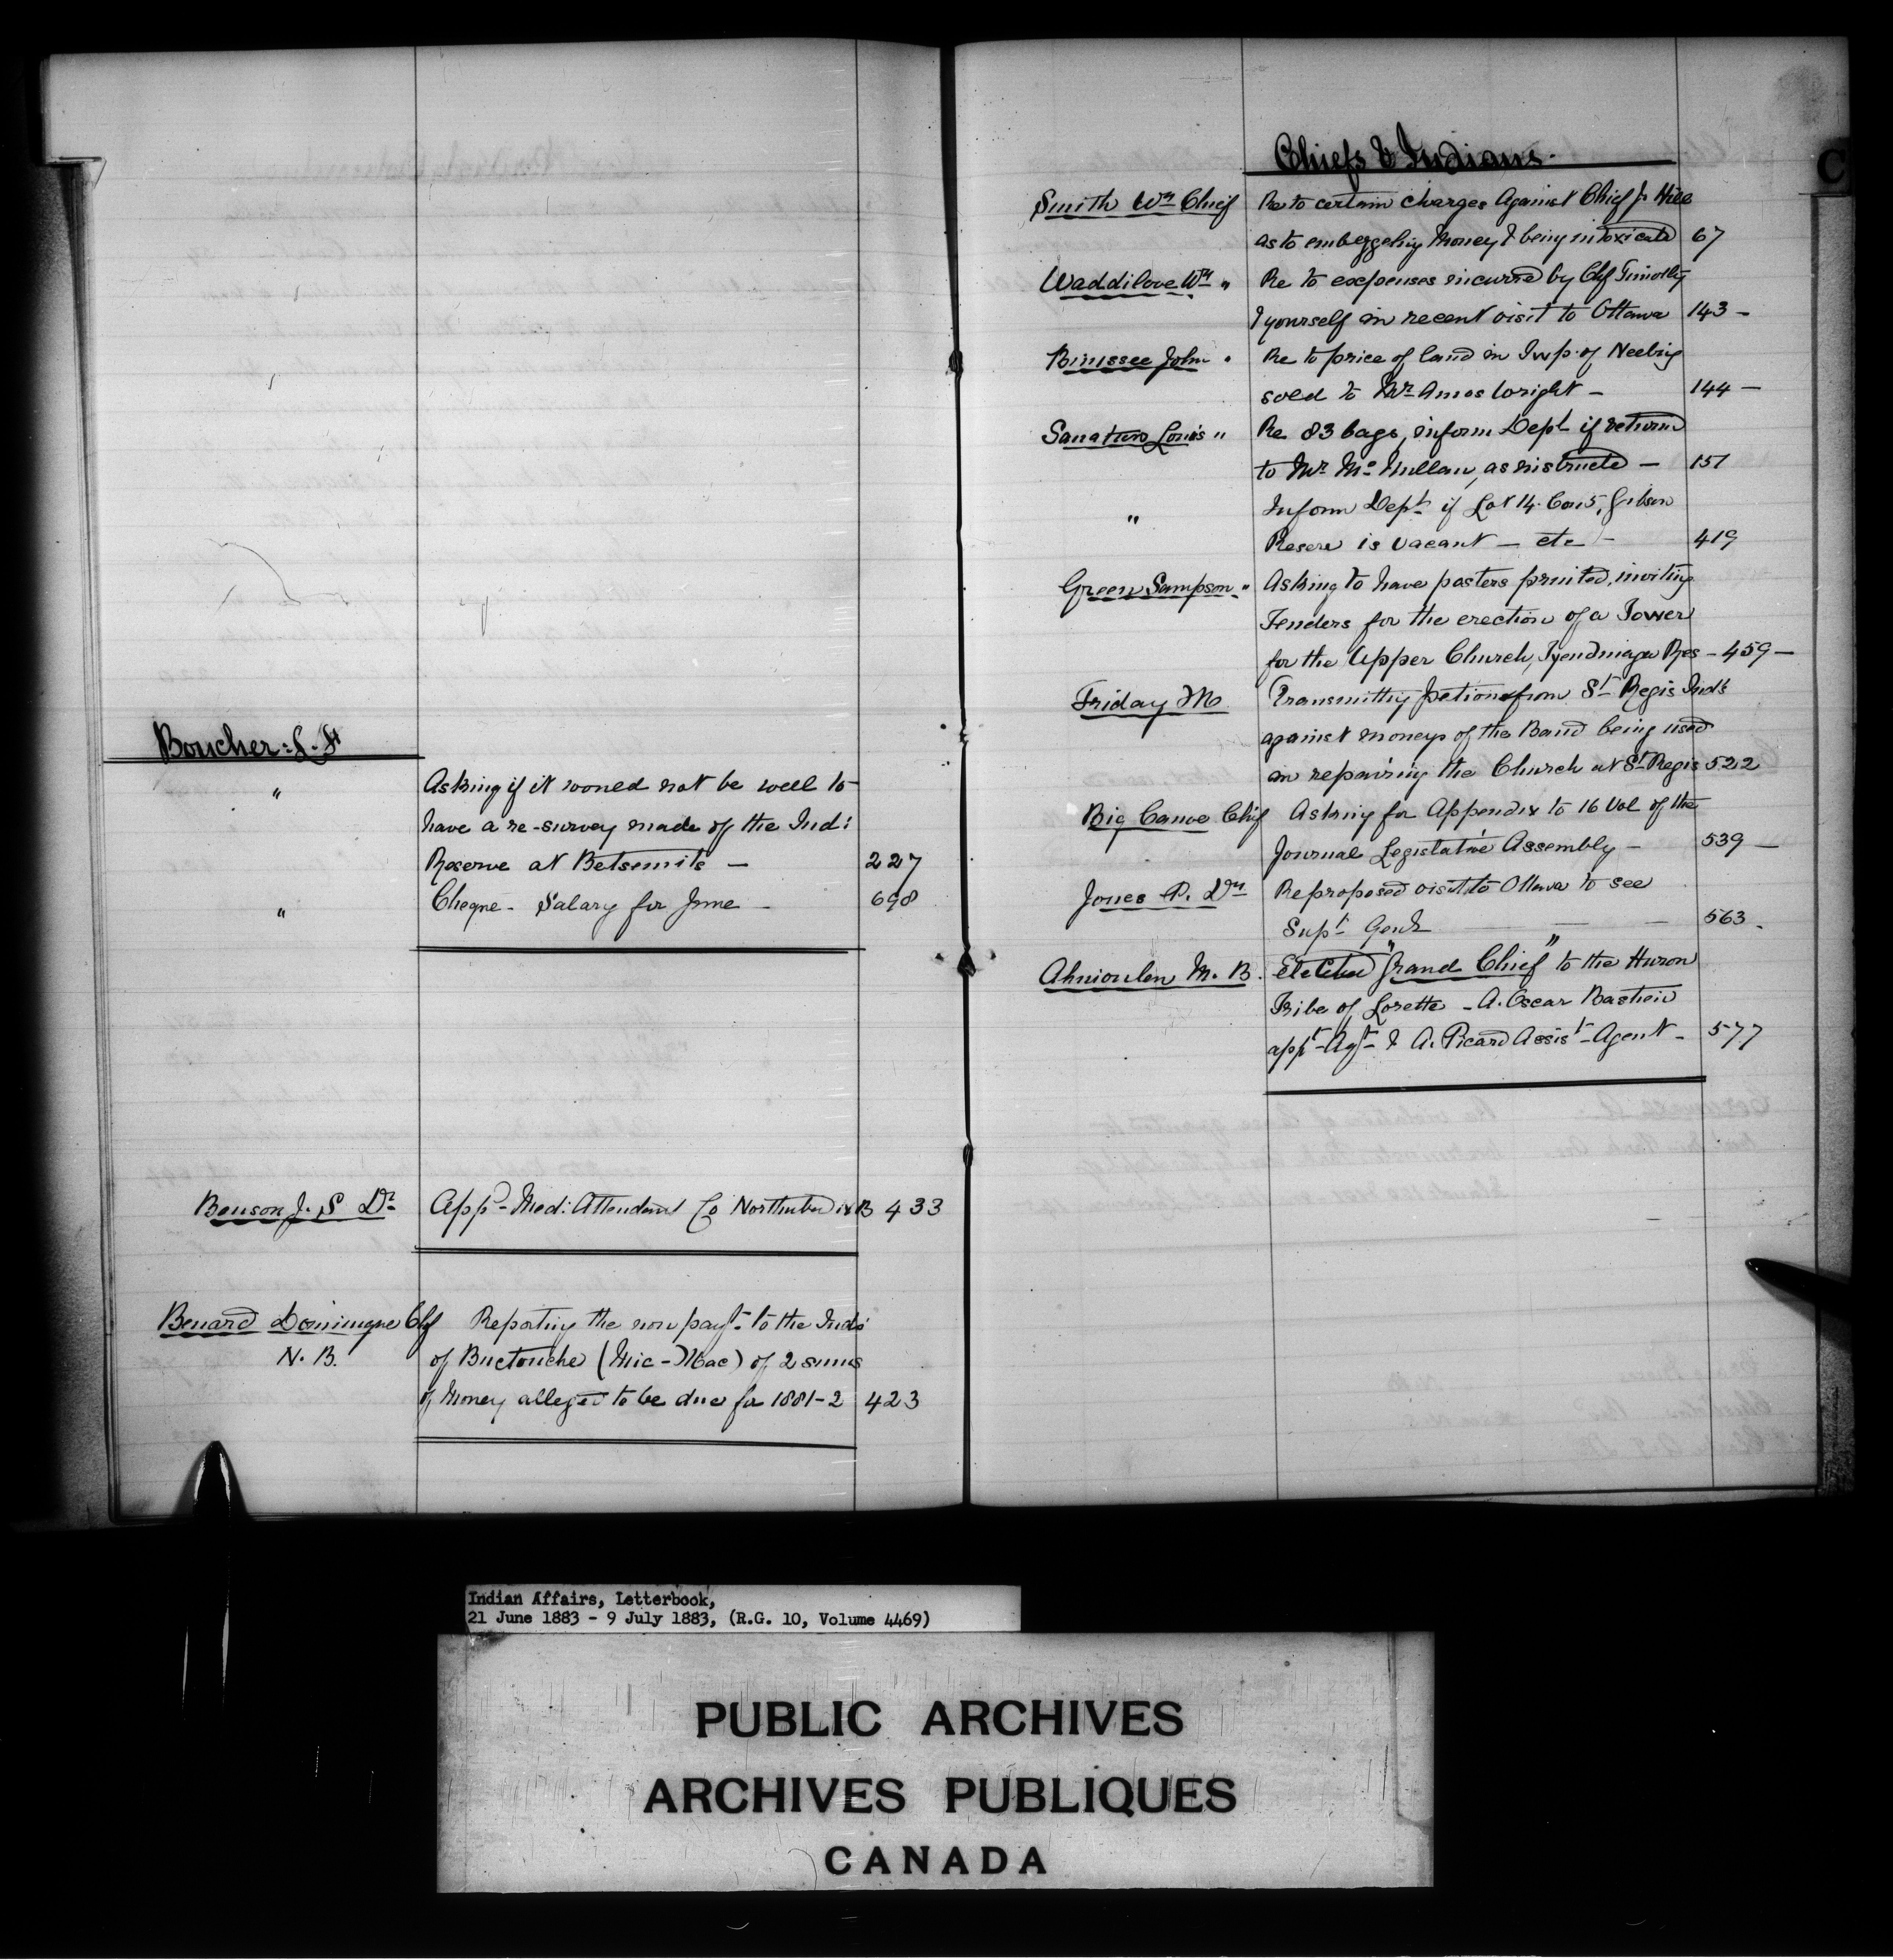 Boucher: L. F
" Asking if it would not be well to
have a re-survey made of the Ind:
Reserve at Betsemits — 227
" Cheque - Salary for June - 698
Benson J. S Dr App - Med: Attendant Co Northumbd N B 433
Benard Dominique Chf Reporting the non payt. to the Inds
N. B. of Buctouche (Mic-Mac) of 2 sums
of Money alleged to be due for 1881-2 423
C
Chiefs & Indians.
Smith Wm Chief Re to certain charges Against Chief J. Hill
as to embezzeling Money & being intoxicated 67
Waddilove Wm " Re to expenses incurred by Chf Timothy
& yourself in recent visit to Ottawa 143 -
Binissee John " Re to price of land in Twp. of Neebing
sold to Mr Amos Wright - 144 -
Louis " Re 83 bags, inform Dept if returned
to Mr Mc Mullan, as instructed — 151
" Inform Dept if Lot 14. Con 5, Gibson
Reserve is vacant — etc - 419
Green Sampson " Asking to have posters printed, inviting
Tenders for the erection of a Tower
for the Upper Church, Tyendinaga Res - 459 -
Friday M Transmitting petition from St Regis Inds
against moneys of the Band being used
in repairing the Church at St Regis 522
Big Canoe Chif Asking for Appendix to 16 Vol of the
Journal Legistative Assembly - 539 —
Jones P. Dr Re proposed visit to Ottawa to see
Supt Genl — — 563 -
Ahnioulen M. B. Elected "Grand Chief" to the Huron
Tribe of Lorette - A. Oscar Bastien
appt - Agt - & A. Picard Assist - Agent - 577
Indian Affairs, Letterbook,
21 June 1883 - 9 July 1883, (R.G. 10, Volume 4469)
PUBLIC ARCHIVES
ARCHIVES PUBLIQUES
CANADA